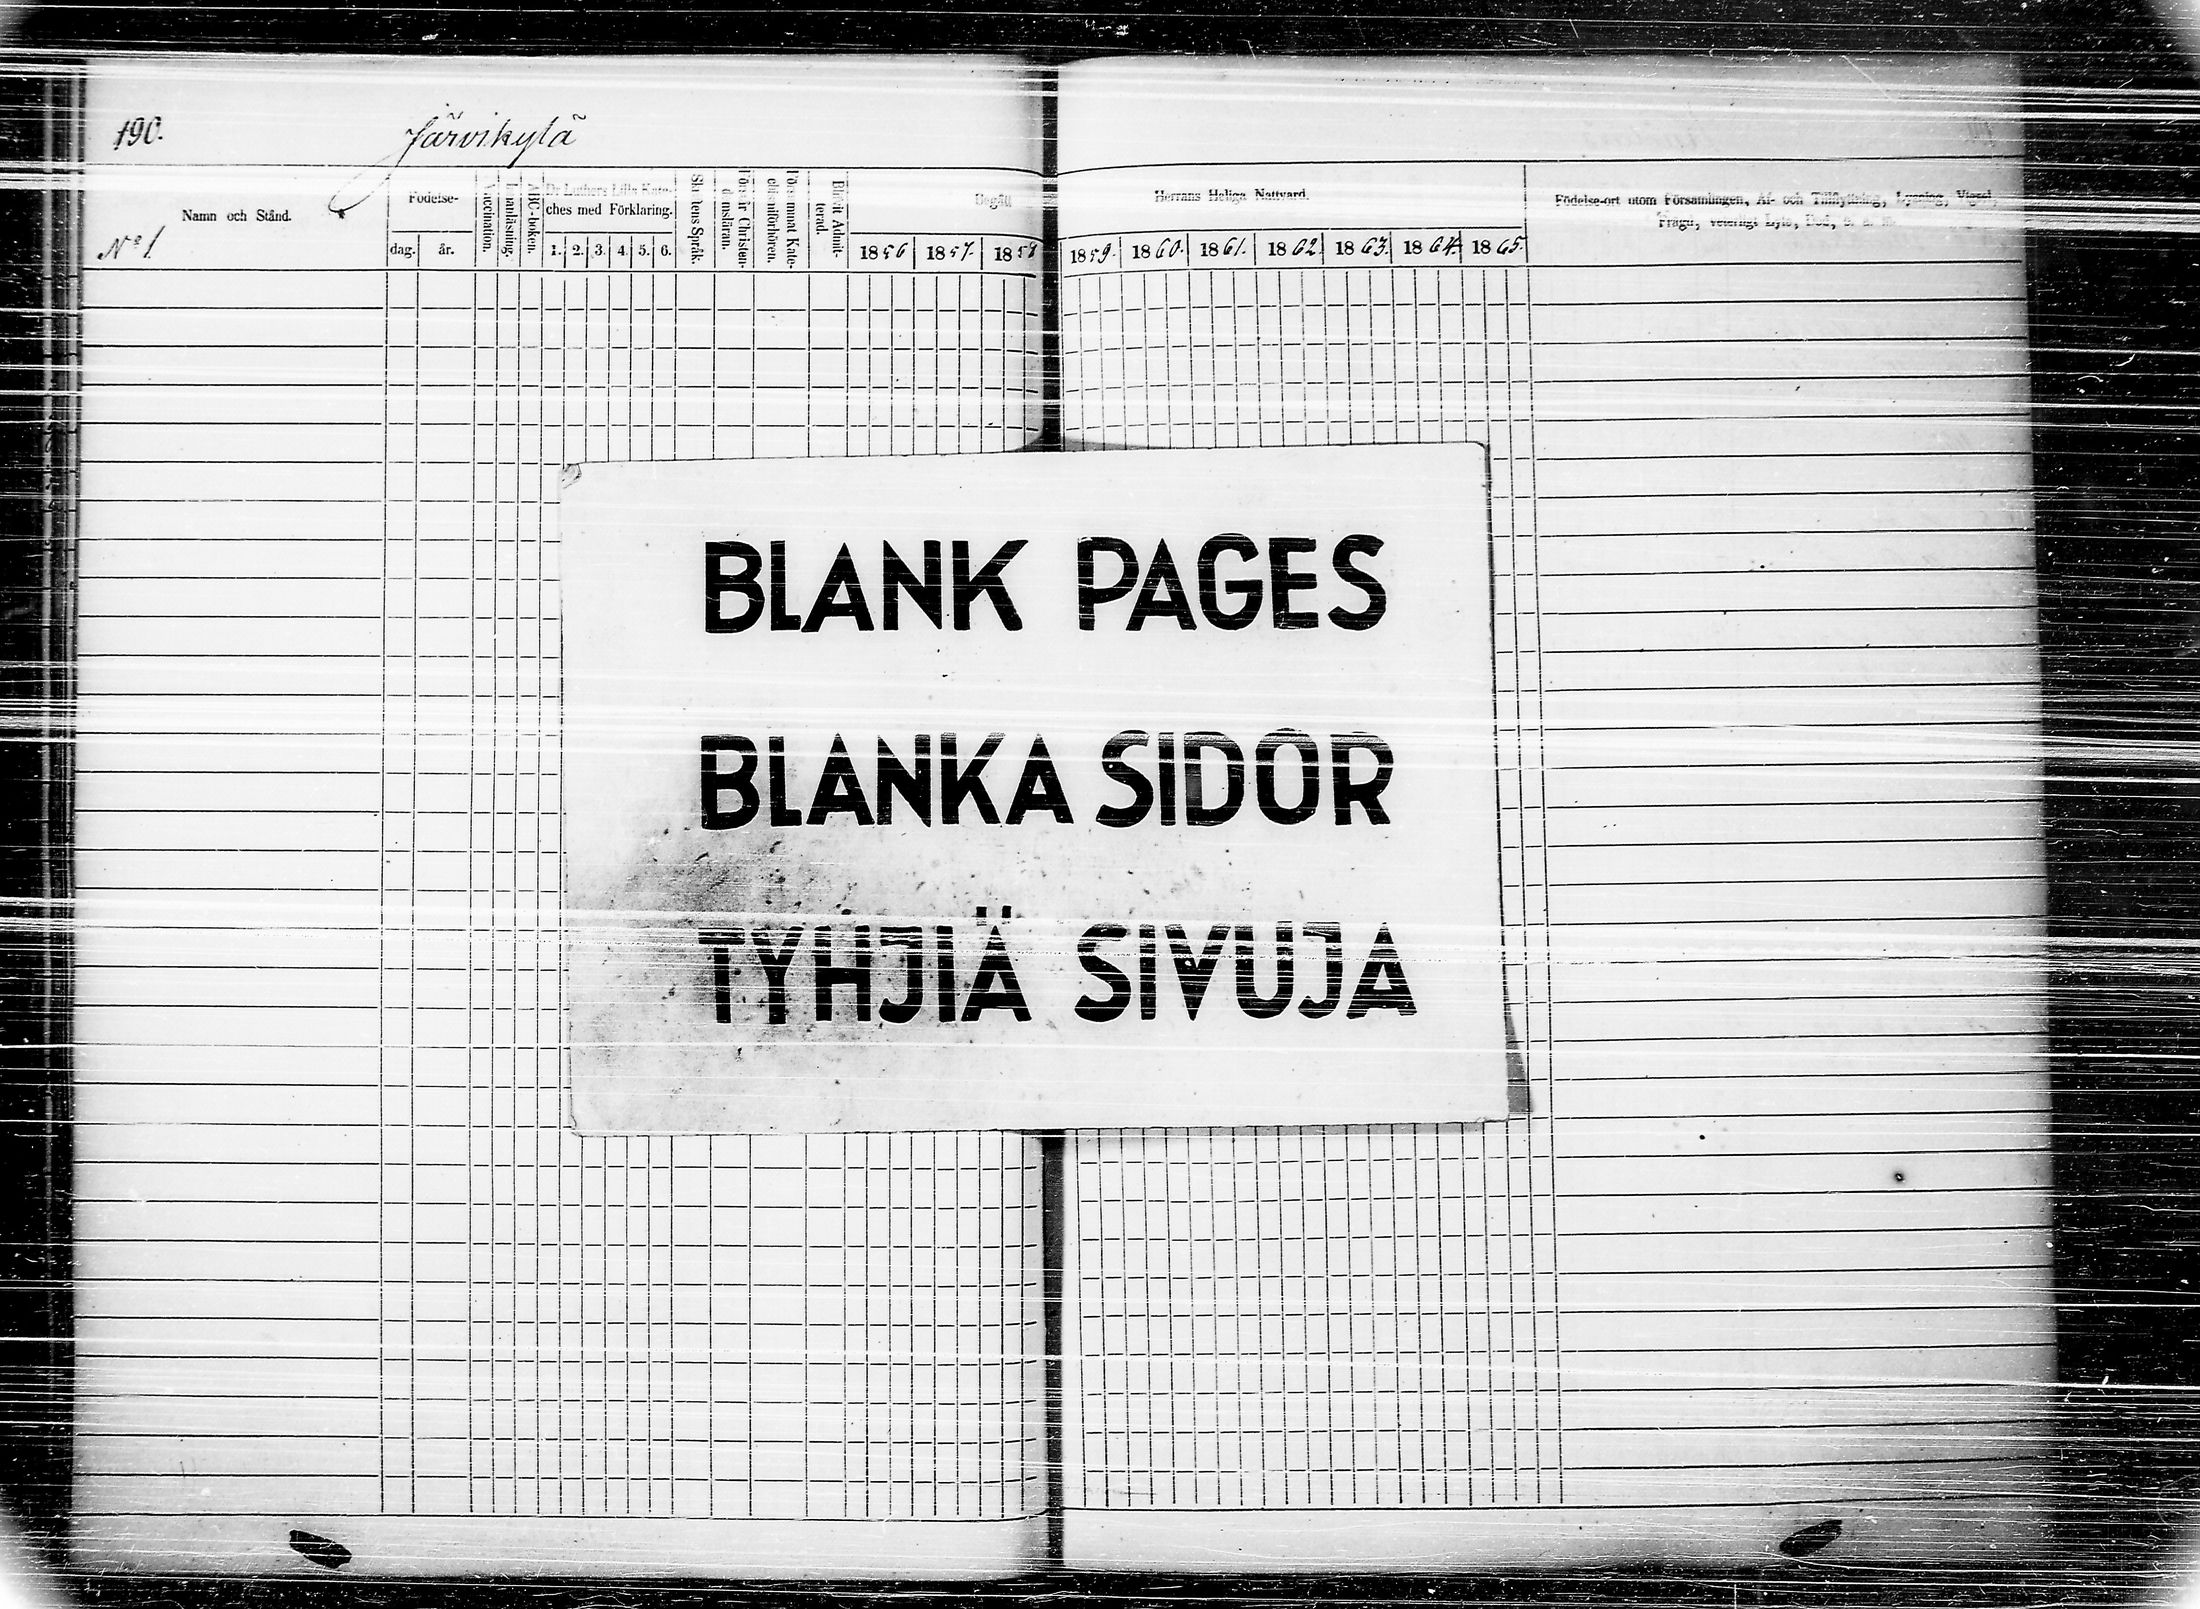 190.
Järvikylä
Namn och Stånd.
No 1.
Födelse-
dag.
år.
Vaccination.
Innanläsning.
ABC-boken.
Dr Luthers Lilla Kate-
ches med Förklaring.
1. 2. 3. 4. 5. 6.
Språk.
Försvår Christen-
domsläran.
Försummat Kate-
chismiförhören.
Blifvit Admit-
terad.
Begått
1856 1857. 1858
Herrans Heliga Nattvard.
1859. 1860. 1861. 1862. 1863. 1864. 1865.
Födelse-ort utom Församlingen, Af- och Tillflyttning, Lysning, Vigsel,
Frägd, veterligt Lyte, Död, o. s. m.
BLANK PAGES
BLANKA SIDOR
TYHJIÄ SIVUJA